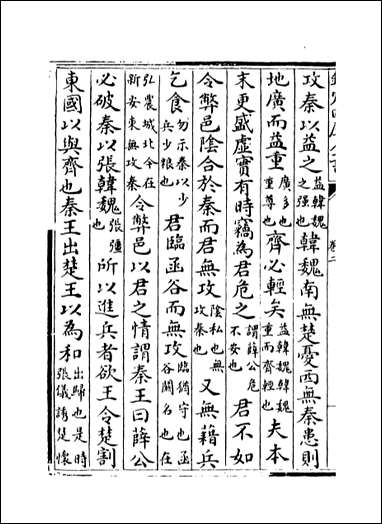 卷二
攻秦以益之益韓魏之强也韓魏南無楚憂西無秦患則
地廣而益重廣多也重尊也齊必輕矣益韓魏韓魏重而齊輕也夫本
末更盛虛實有時竊為君危之謂薛公危不安也君不如
令弊邑陰合於秦而君無攻陰私也無攻秦也又無藉兵
乞食勿示秦以少兵少粮也君臨函谷而無攻臨猶守也函谷關名也在
弘農城北今在新安東無攻秦令弊邑以君之情謂秦王曰薛公
必破秦以張韓魏張彊也所以進兵者欲王令楚割
東國以與齊也秦王出楚王以為和出歸也是時張儀誘楚懷